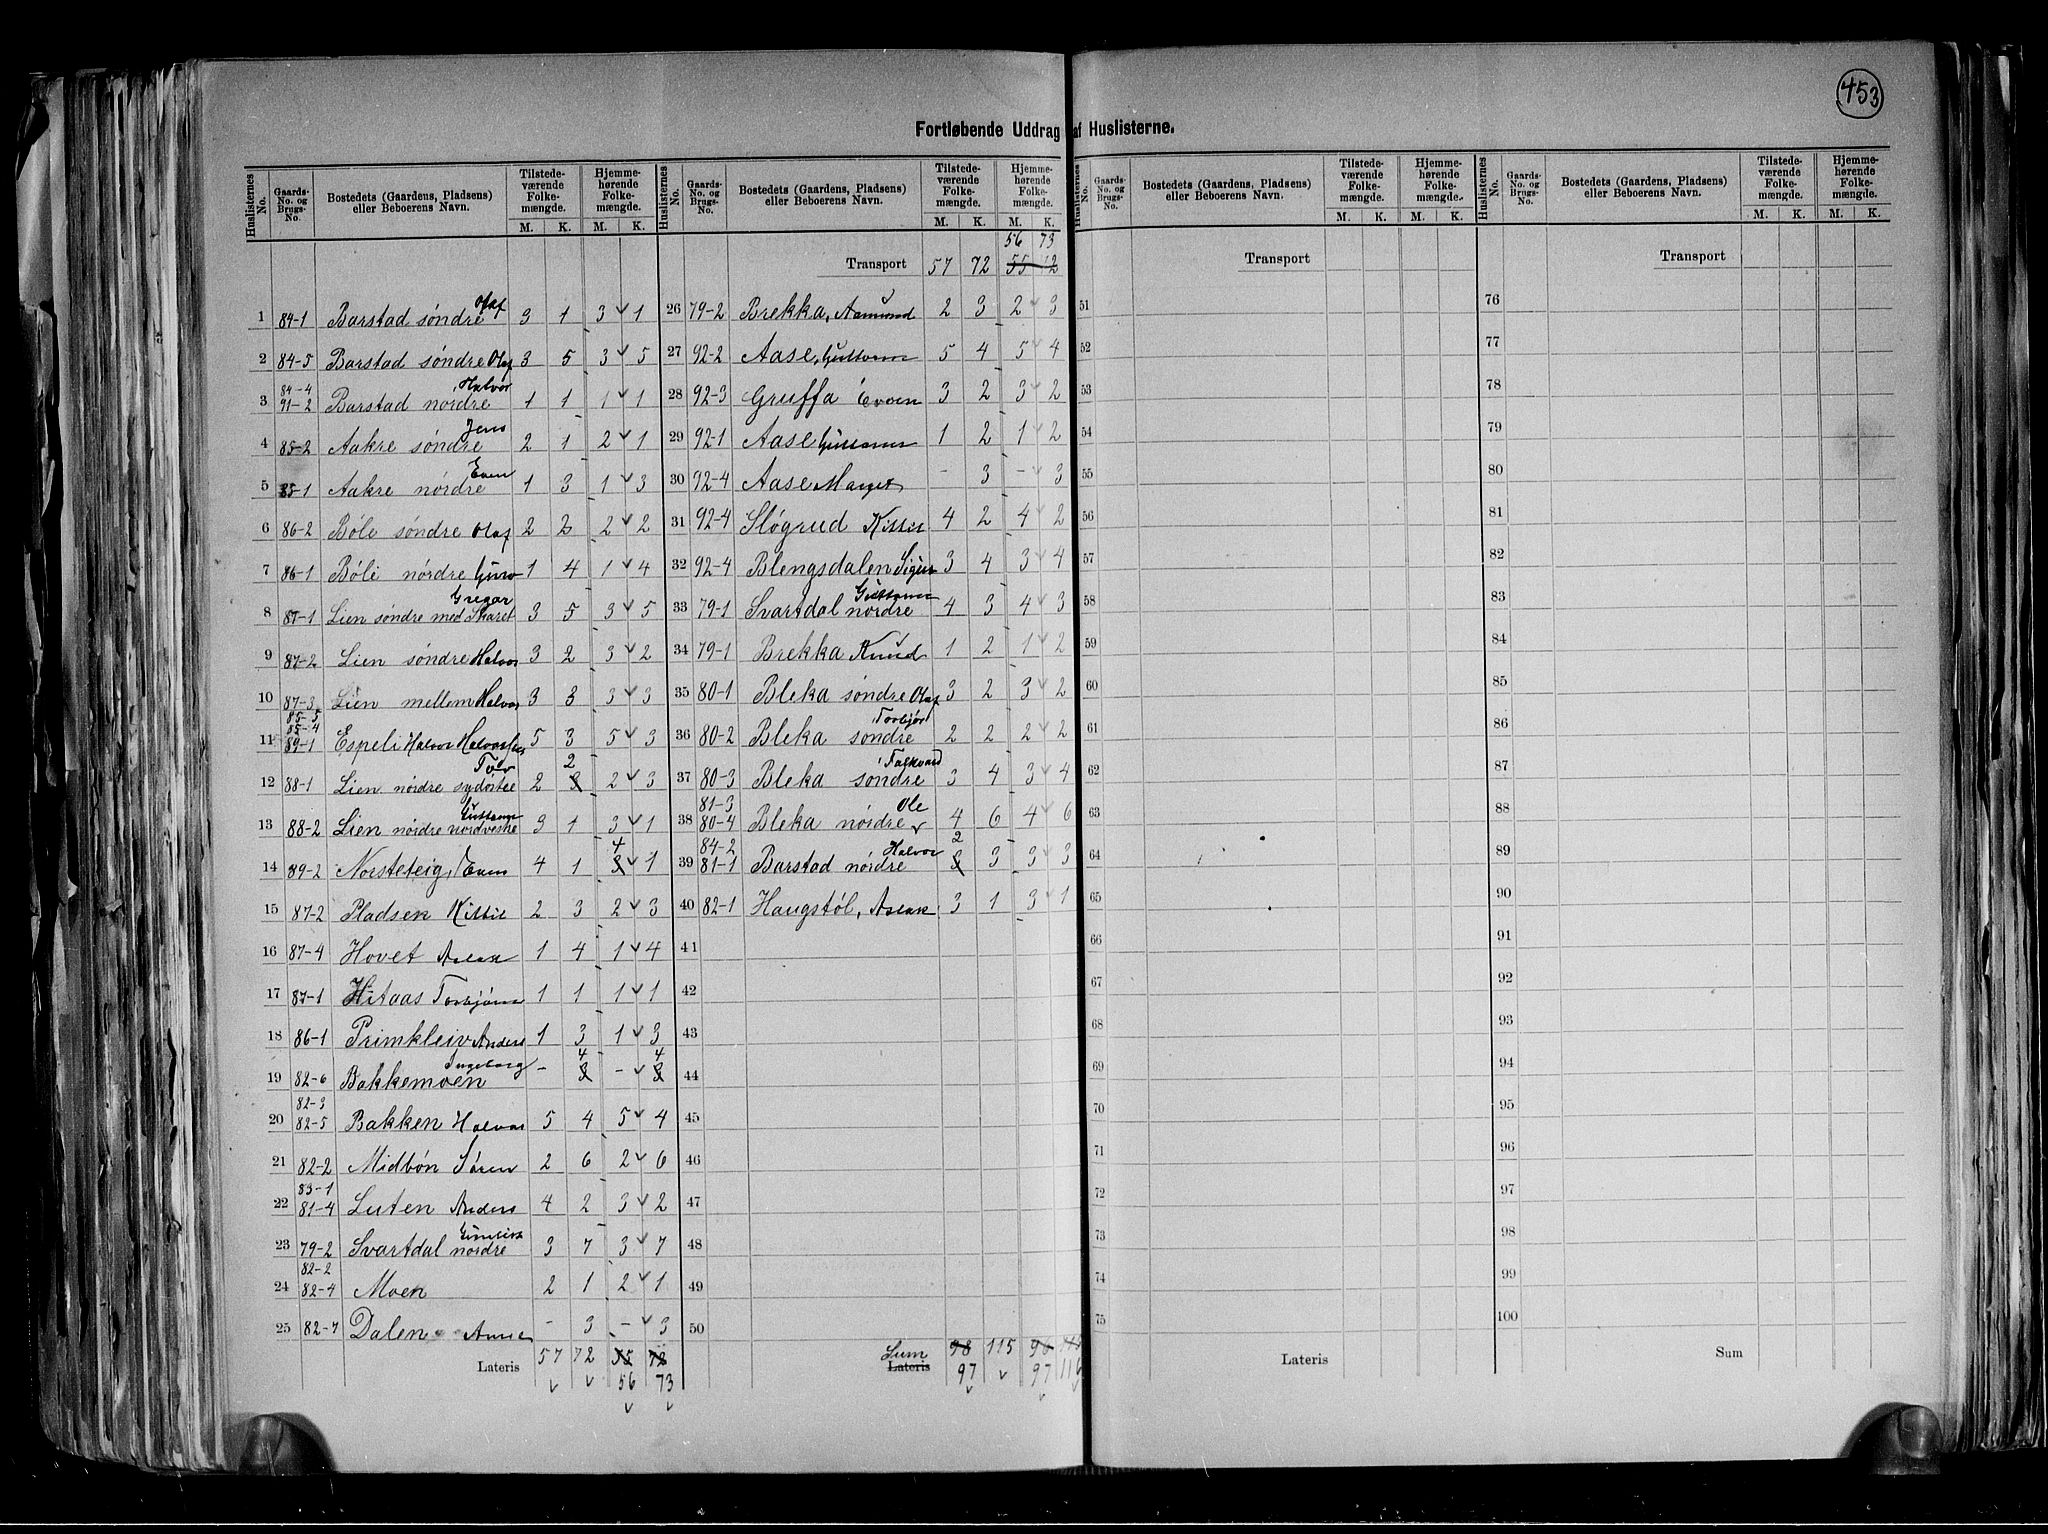 453
Fortløbende Uddrag af Huslisterne.
Huslisternes No. Gaards-No. og Brugs-No. Bostedets (Gaardens, Pladsens) eller Beboerens Navn. Tilstedeværende Folkemængde. M. K. Hjemmehørende Folkemængde. M. K.
1 84-1 Barstad søndre Olaf 3 1 3 1
2 84-5 Barstad søndre Olaf 3 5 3 5
3 84-4 91-2 Barstad nordre, Halvor 1 1 1 1
4 85-2 Aakre søndre Jens 2 1 2 1
5 85-1 Aakre nørdre Even 1 3 1 3
6 86-2 Bóli søndre Olaf 2 2 2 2
7 86-1 Bóli nørdre Guro 1 4 1 4
8 87-1 Lien søndre med Skaret Gregar 3 5 3 5
9 87-2 Lien søndre Halvor 3 2 3 2
10 87-3 Lien mellem Halvor 3 3 3 3
11 85-5 85-4 89-1 Espeli Halvor Halvorsen 5 3 5 3
12 88-1 Lien nørdre sydøstre 2 3 2 2 3
13 88-2 Lien nørdre nordvestre 3 1 3 1
14 89-2 Norsteteig, Even 4 1 3 4 1
15 87-2 Pladsen Kittil 2 3 2 3
16 87-4 Hovet Aslak 1 4 1 4
17 87-1 Hitaas Torbjørn 1 1 1 1
18 86-1 Primkleiv Anders 1 3 1 3
19 82-6 Bakkemoen Ingeborg - 3 4 - 3 4
20 82-3 82-5 Bakken Halvor 5 4 5 4
21 82-2 Midbøn Søren 2 6 2 6
22 83-1 81-4 Luten Anders 4 2 3 2
23 79-2 Svartdal nordre 3 7 3 7
24 82-2 82-4 Moen 2 1 2 1
25 82-7 Dalen Anne - 3 - 3
Lateris 57 72 55 72
56 73
Huslisternes No. Gaards-No. og Brugs-No. Bostedets (Gaardens, Pladsens) eller Beboerens Navn. Tilstedeværende Folkemængde. M. K. Hjemmehørende Folkemængde. M. K.
56 73
Transport 57 72 55 72
26 79-2 Brekka, Aamund 2 3 2 3
27 92-2 Aase, Guttorm 5 4 5 4
28 92-3 Gruffa Even 3 2 3 2
29 92-1 Aase Guttorm 1 2 1 2
30 92-4 Aase Marget - 3 - 3
31 92-4 Sløgrud Kittil 4 2 4 2
32 92-4 Blengsdalen 3 4 3 4
33 79-1 Svartdal nordre Guttorm 4 3 4 3
34 79-1 Brekka Knud 1 2 1 2
35 80-1 Bleka søndre Olaf 3 2 3 2
36 80-2 Bleka søndre, Torbjør 2 2 2 2
37 80-3 Bleka søndre, Folkvard 3 4 3 4
38 81-3 80-4 Bleka nørdre Ole 4 6 4 6
39 84-2 81-1 Barstad nórdre Halvor 3 2 3 3 3
40 82-1 Haugstøl, Aslak 3 1 3 1
41
42
43
44
45
46
47
48
49
50
Sum Lateris 98 115 96 115
97 97 116
Huslisternes No. Gaards-No. og Brugs-No. Bostedets (Gaardens, Pladsens) eller Beboerens Navn. Tilstedeværende Folkemængde. M. K. Hjemmehørende Folkemængde. M. K.
Transport
51
52
53
54
55
56
57
58
59
60
61
62
63
64
65
66
67
68
69
70
71
72
73
74
75
Lateris
Huslisternes No. Gaards-No. og Brugs-No. Bostedets (Gaardens, Pladsens) eller Beboerens Navn. Tilstedeværende Folkemængde. M. K. Hjemmehørende Folkemængde. M. K.
Transport
76
77
78
79
80
81
82
83
84
85
86
87
88
89
90
91
92
93
94
95
96
97
98
99
100
Sum